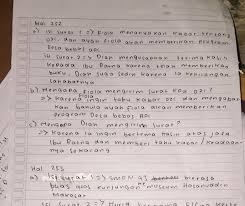 Hal 252
a) isi surat 1 => Fiola menanyakan kabar tentang
ozi dan ayah Fiola akan memberikan program
Desa bebas api
isi surat 2 => Dian mengucapkan terima kasih
kepada Ibu Ratna karena telah memberikan
buku, Dian juga sedih karena ia kehilangan
sahabatnya
b) Mengapa Fiola mengirim surat kpd ozi?
=> karena Fiola ingin tahu kabar ozi dan mengabar
kan bahwa ayah akan memberikan
program Desa bebas api
c) Mengapa Dian mengirim surat?
=> karena ia ingin berterima kasih atas jasa
Ibu Ratna dan memberi tahu kabar / keadaan
nya sekarang
Hal 253
a) isi surat 1 => SMPN 97 berasa
bebas atas kunjungan museum Hasanuddin
Makassar
isi surat 2 =>